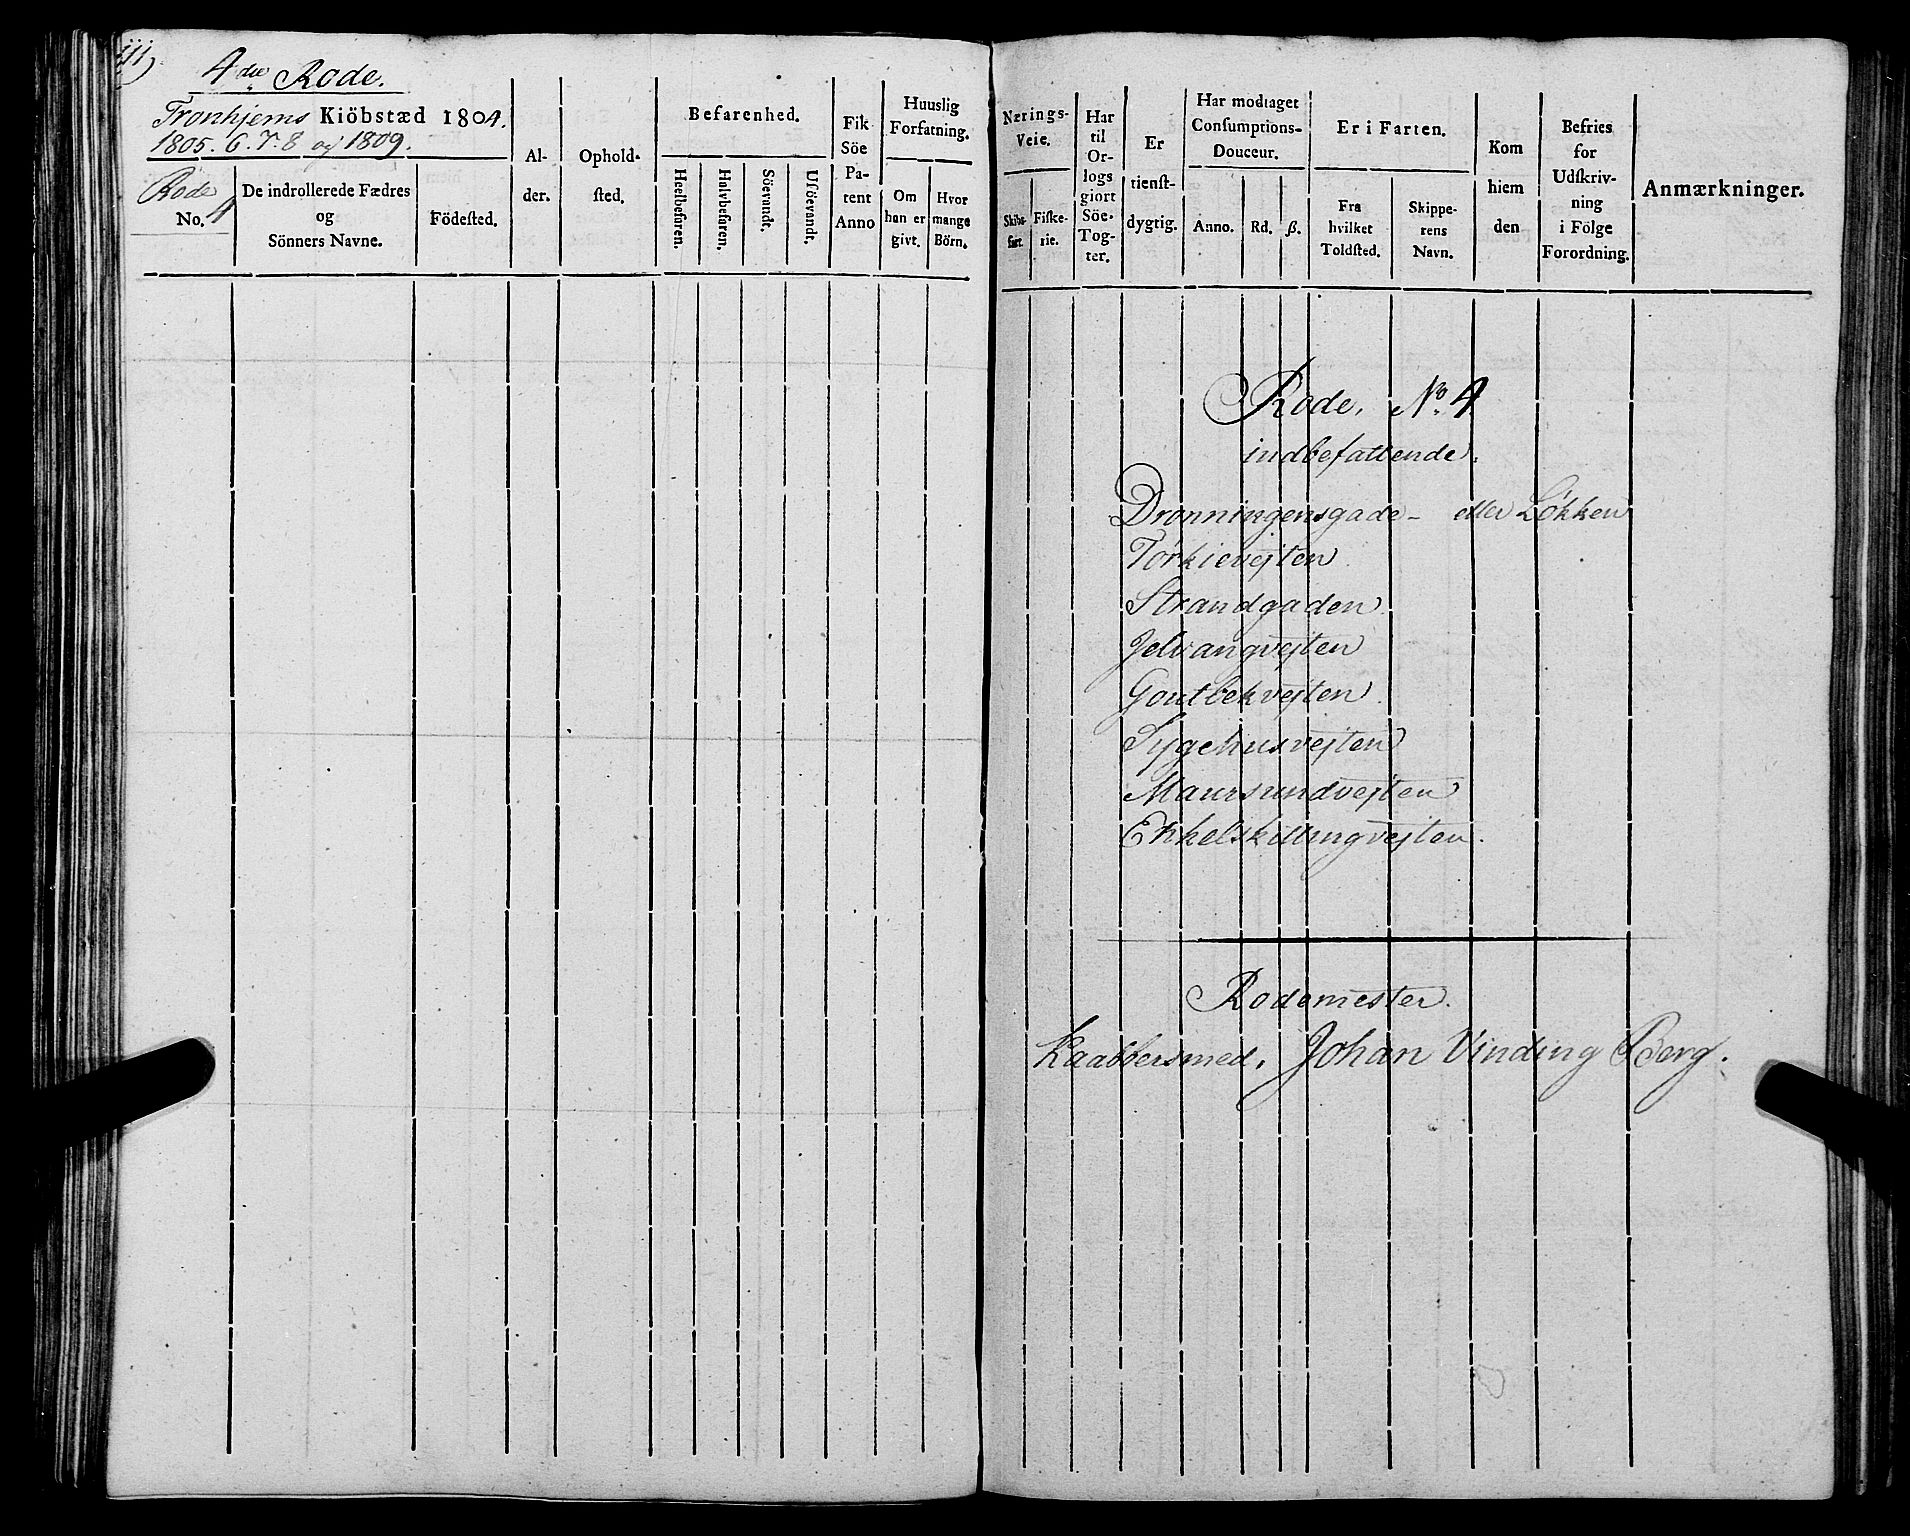 4de Rode.
Tronhjems Kiöbstæd 1804.
1805. 6. 7. 8 og 1809.
Rode
No. 4
De indrollerede Fædres
og
Sönners Navne.
Födested.
Al-
der.
Ophold-
sted.
Befarenhed.
Heelbefaren.
Halvbefaren.
Söevandt.
Usöevandt.
Fik
Söe
Pa-
tent
Anno
Huuslig
Forfatning.
Om
han er
givt.
Hvor
mange
Börn.
Nærings-
Veie.
Skibs-
fart.
Fiske-
rie.
Har
til
Or-
logs
giort
Söe-
Tog-
ter.
Er
tienst-
dygtig.
Har modtaget
Consumptions-
Douceur.
Anno.
Rd.
ß.
Er i Farten.
Fra
hvilket
Toldsted.
Skippe-
rens
Navn.
Kom
hiem
den
Befries
for
Udskriv-
ning
i Fölge
Forordning.
Anmærkninger.
Rode, No. 4
indbefattende.
Dronningensgade - eller Løkken
Tørkievejten
Strandgaden
Jelvangvejten
Goutbekvejten
Sygehusvejten
Maursundvejten
Enkelskillingvejten.
Rodemester.
Kaabbersmed, Johan Vinding Berg.